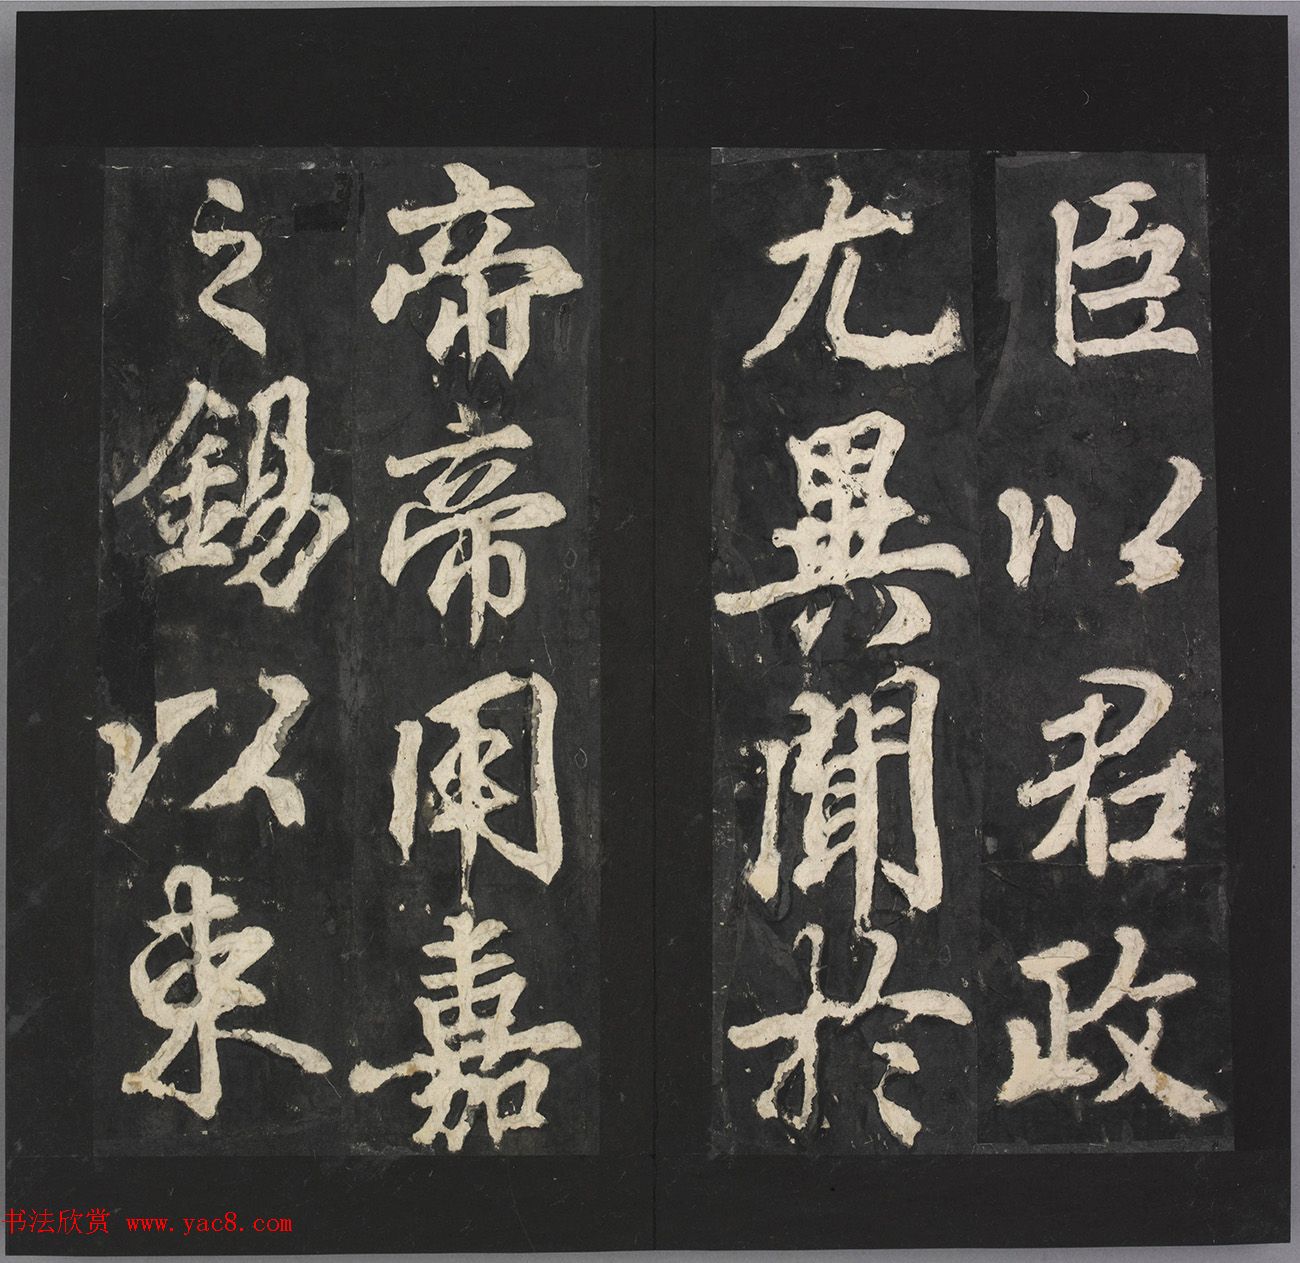 臣以君政
尤異聞於
帝帝用嘉
之錫以束
书法欣赏 www.yac8.com